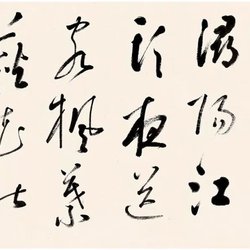 潯陽江
頭夜送
客楓葉
荻花